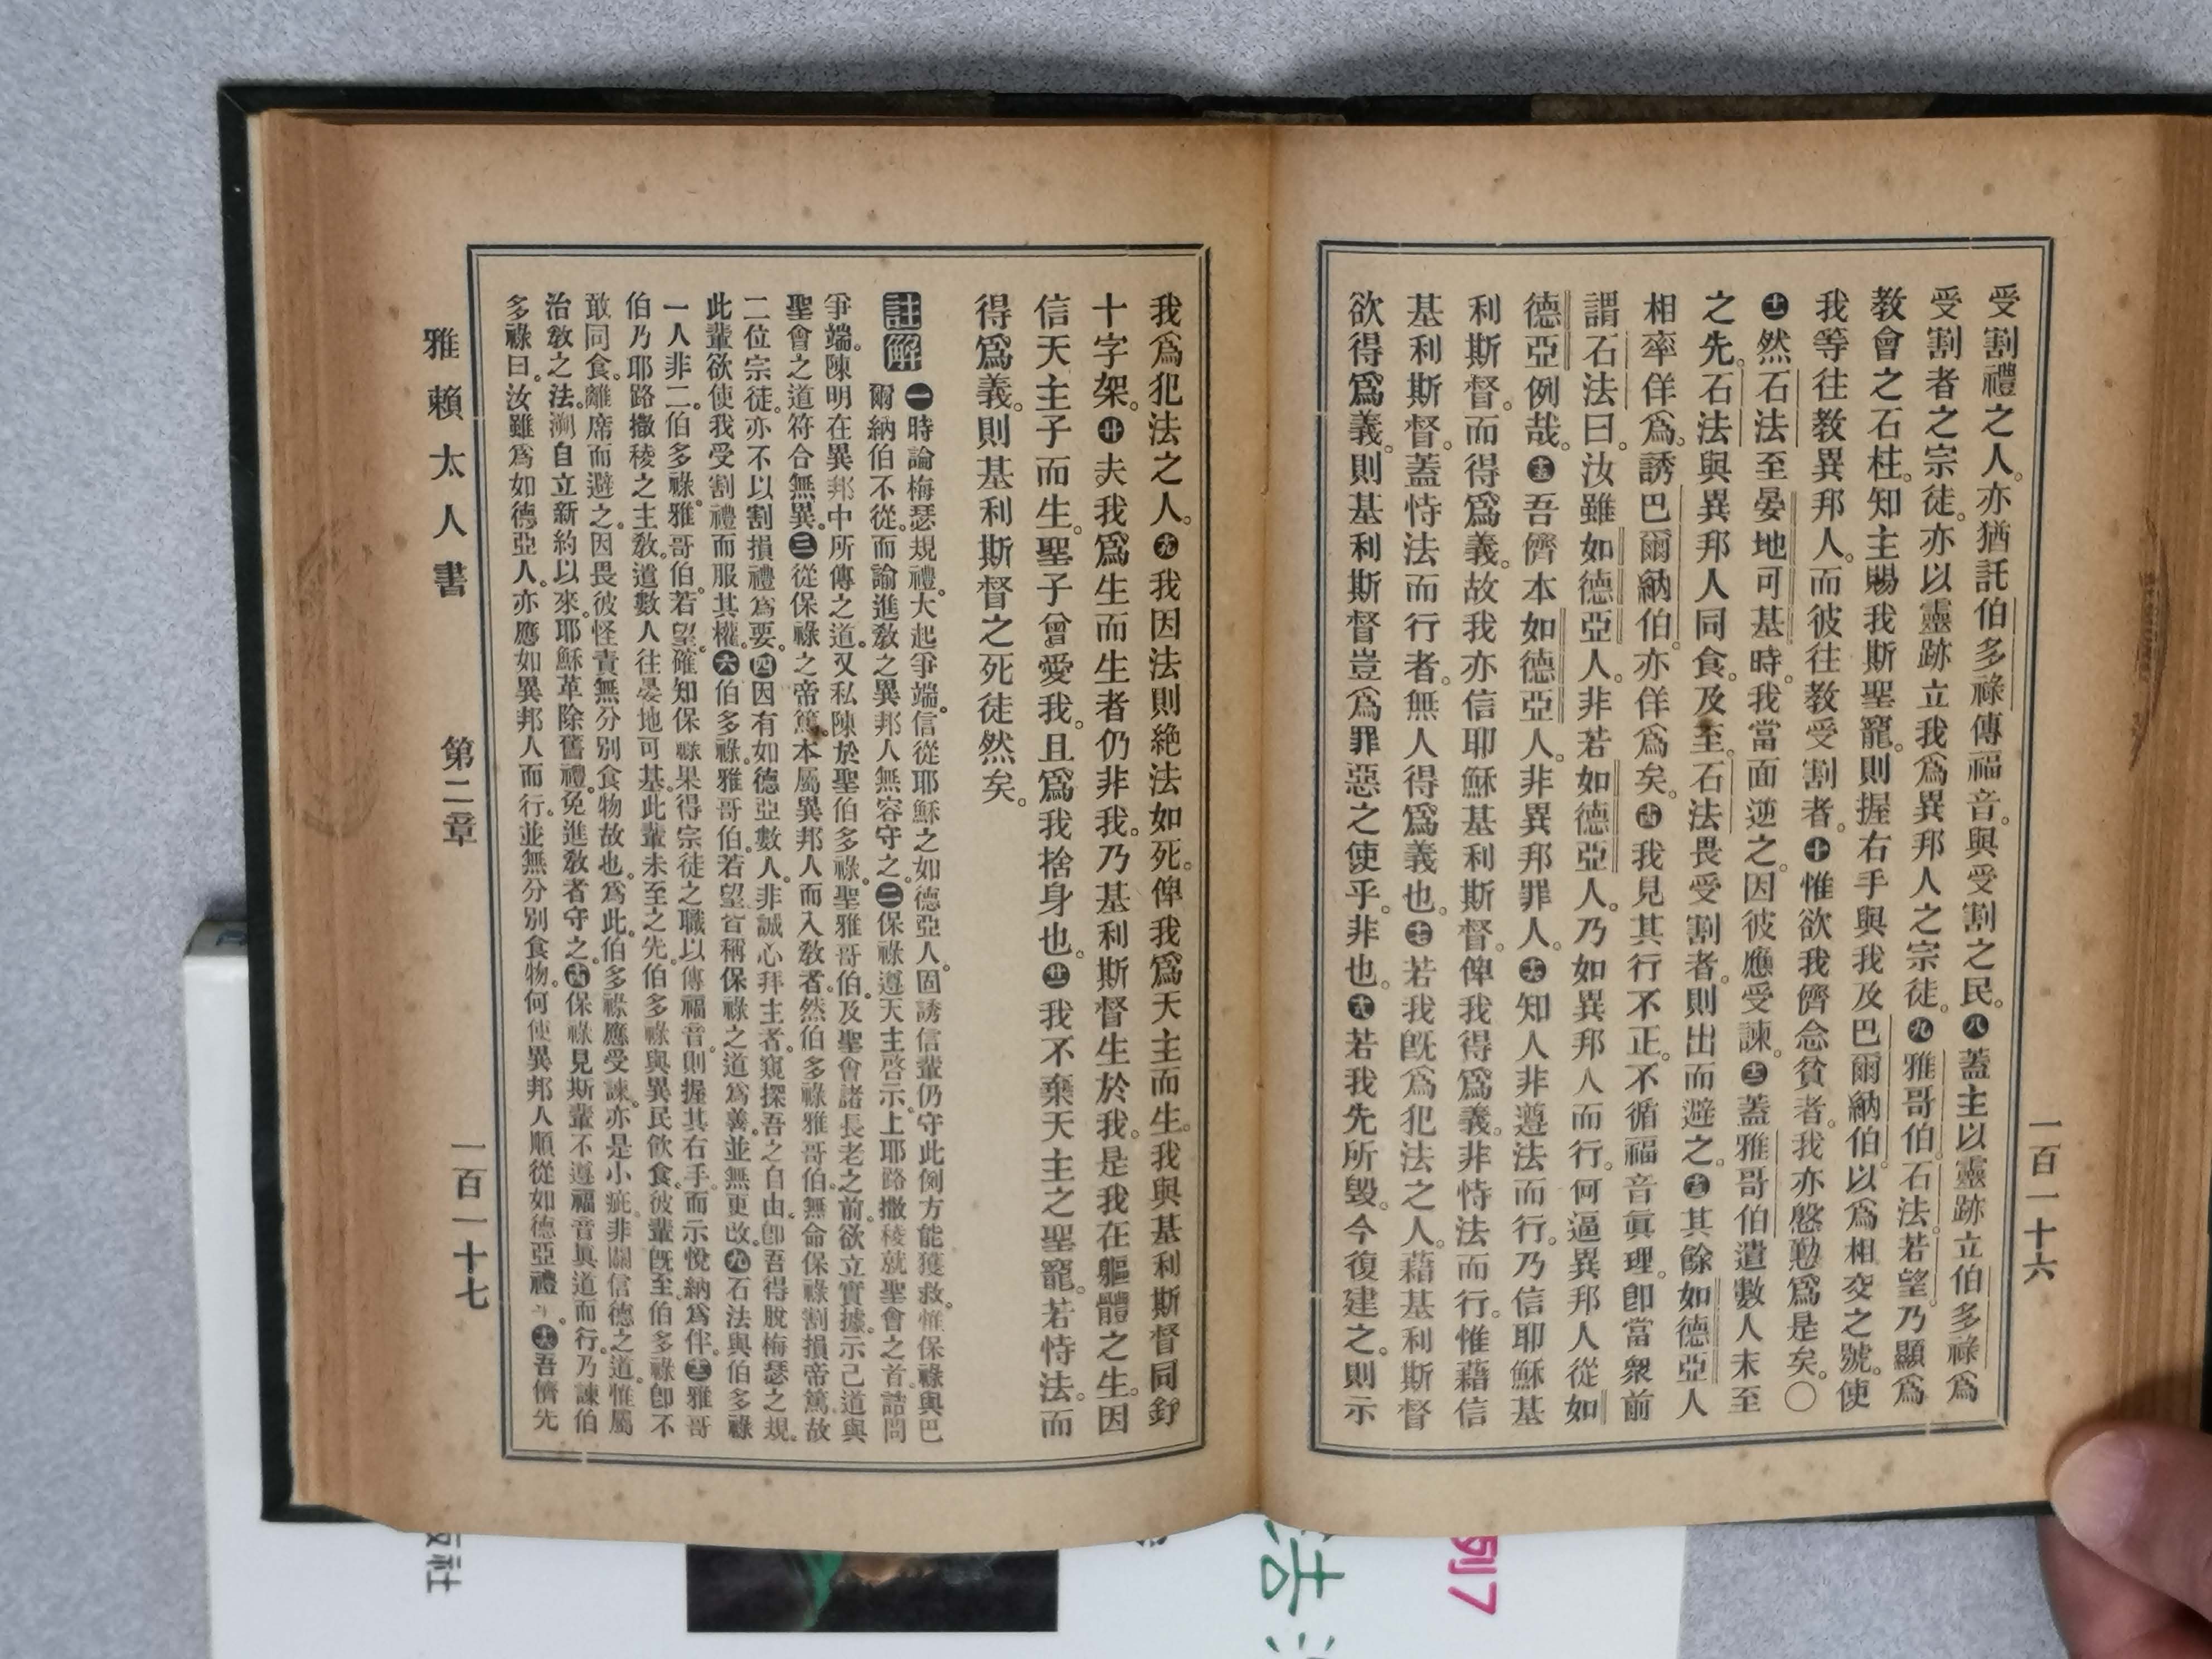 受割禮之人。亦猶託伯多祿傳福音。與受割之民。八蓋主以靈跡立伯多祿爲
受割者之宗徒。亦以靈跡立我爲異邦人之宗徒。九雅哥伯。石法。若望。乃顯爲
教會之石柱。知主賜我斯聖寵。則握右手與我及巴爾納伯。以爲相交之號。使
我等往教異邦人。而彼往教受割者。十惟欲我儕念貧者。我亦慇懃爲是矣。〇
十一然石法至晏地可基時。我當面逆之。因彼應受諫。十二蓋雅哥伯遣數人未至
之先。石法與異邦人同食。及至。石法畏受割者。則出而避之。十三其餘如德亞人
相率佯爲。誘巴爾納伯。亦佯爲矣。十四我見其行不正。不循福音眞理。卽當衆前
謂石法曰。汝雖如德亞人。非若如德亞人。乃如異邦人而行。何逼異邦人從如
德亞例哉。十五吾儕本如德亞人。非異邦罪人。十六知人非遵法而行。乃信耶穌基
利斯督。而得爲義。故我亦信耶穌基利斯督。俾我得爲義。非恃法而行。惟藉信
基利斯督。蓋恃法而行者。無人得爲義也。十七若我旣爲犯法之人。藉基利斯督
欲得爲義。則基利斯督豈爲罪惡之使乎。非也。十八若我先所毁。今復建之。則示
一百一十六
我爲犯法之人。十九我因法則絶法如死。俾我爲天主而生。我與基利斯督同釘
十字架。廿夫我爲生而生者仍非我。乃基利斯督生於我。是我在軀體之生。因
信天主子而生。聖子曾愛我。且爲我捨身也。廿一我不棄天主之聖寵。若恃法。而
得爲義。則基利斯督之死徒然矣。
註解 一時論梅瑟規禮。大起爭端。信從耶穌之如德亞人。固誘信輩仍守此例方能獲救。惟保祿與巴
爾納伯不從。而諭進敎之異邦人無容守之。二保祿遵天主啓示。上耶路撒稜就聖會之首。詰問
爭端。陳明在異邦中所傳之道。又私陳於聖伯多祿。聖雅哥伯。及聖會諸長老之前。欲立實據。示己道與
聖會之道符合無異。三從保祿之帝篤。本屬異邦人而入敎者。然伯多祿雅哥伯。無命保祿割損帝篤故
二位宗徒。亦不以割損禮爲要。四因有如德亞數人。非誠心拜主者。窺探吾之自由。卽吾得脫梅瑟之規。
此輩欲使我受割禮而服其權。六伯多祿。雅哥伯。若望皆稱保祿之道爲善。並無更改。九石法與伯多祿
一人非二。伯多祿。雅哥伯。若望。確知保祿果得宗徒之職以傳福音。則握其右手。而示悅納爲伴。十二雅哥
伯乃耶路撒稜之主敎。道數人往晏地可基。此輩未至之先。伯多祿與異民飮食。彼輩旣至。伯多祿卽不
敢同食。離席而避之。因畏彼怪責無分別食物故也。爲此。伯多祿應受諫。亦是小疵。非關信德之道。惟屬
治敎之法。溯自立新約以來。耶穌革除舊禮。免進敎者守之。十四保祿見斯輩不遵福音眞道而行。乃諫伯
多祿曰。汝雖爲如德亞人。亦應如異邦人而行。並無分別食物。何使異邦人順從如德亞禮。十六吾儕先
雅賴太人書 第二章 一百一十七
版社
列7